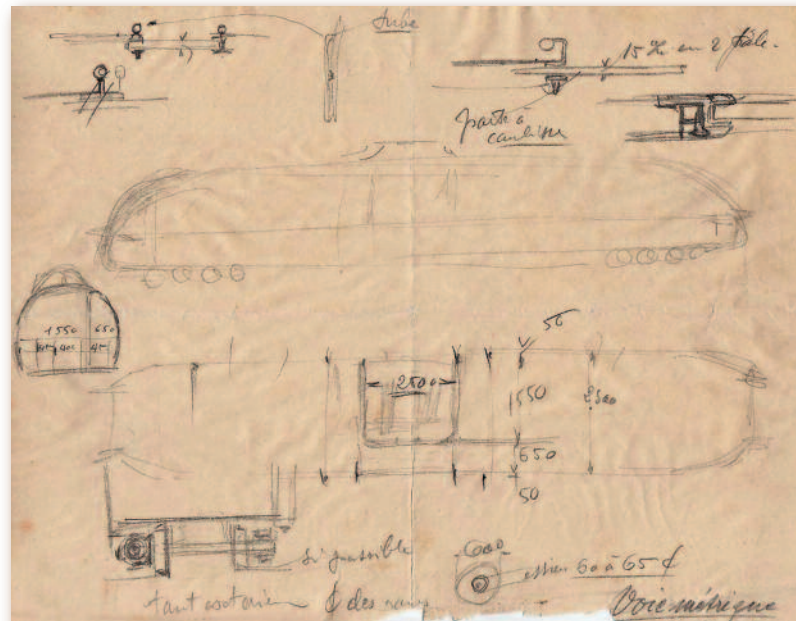 tube
15 ‰ en 2 tôle.
porte à
coulisse
1550 650
50
2500
1550 2500
650
50
si possible
600
essieu 60 à 65 ¢
¢ des roues
Voie métrique